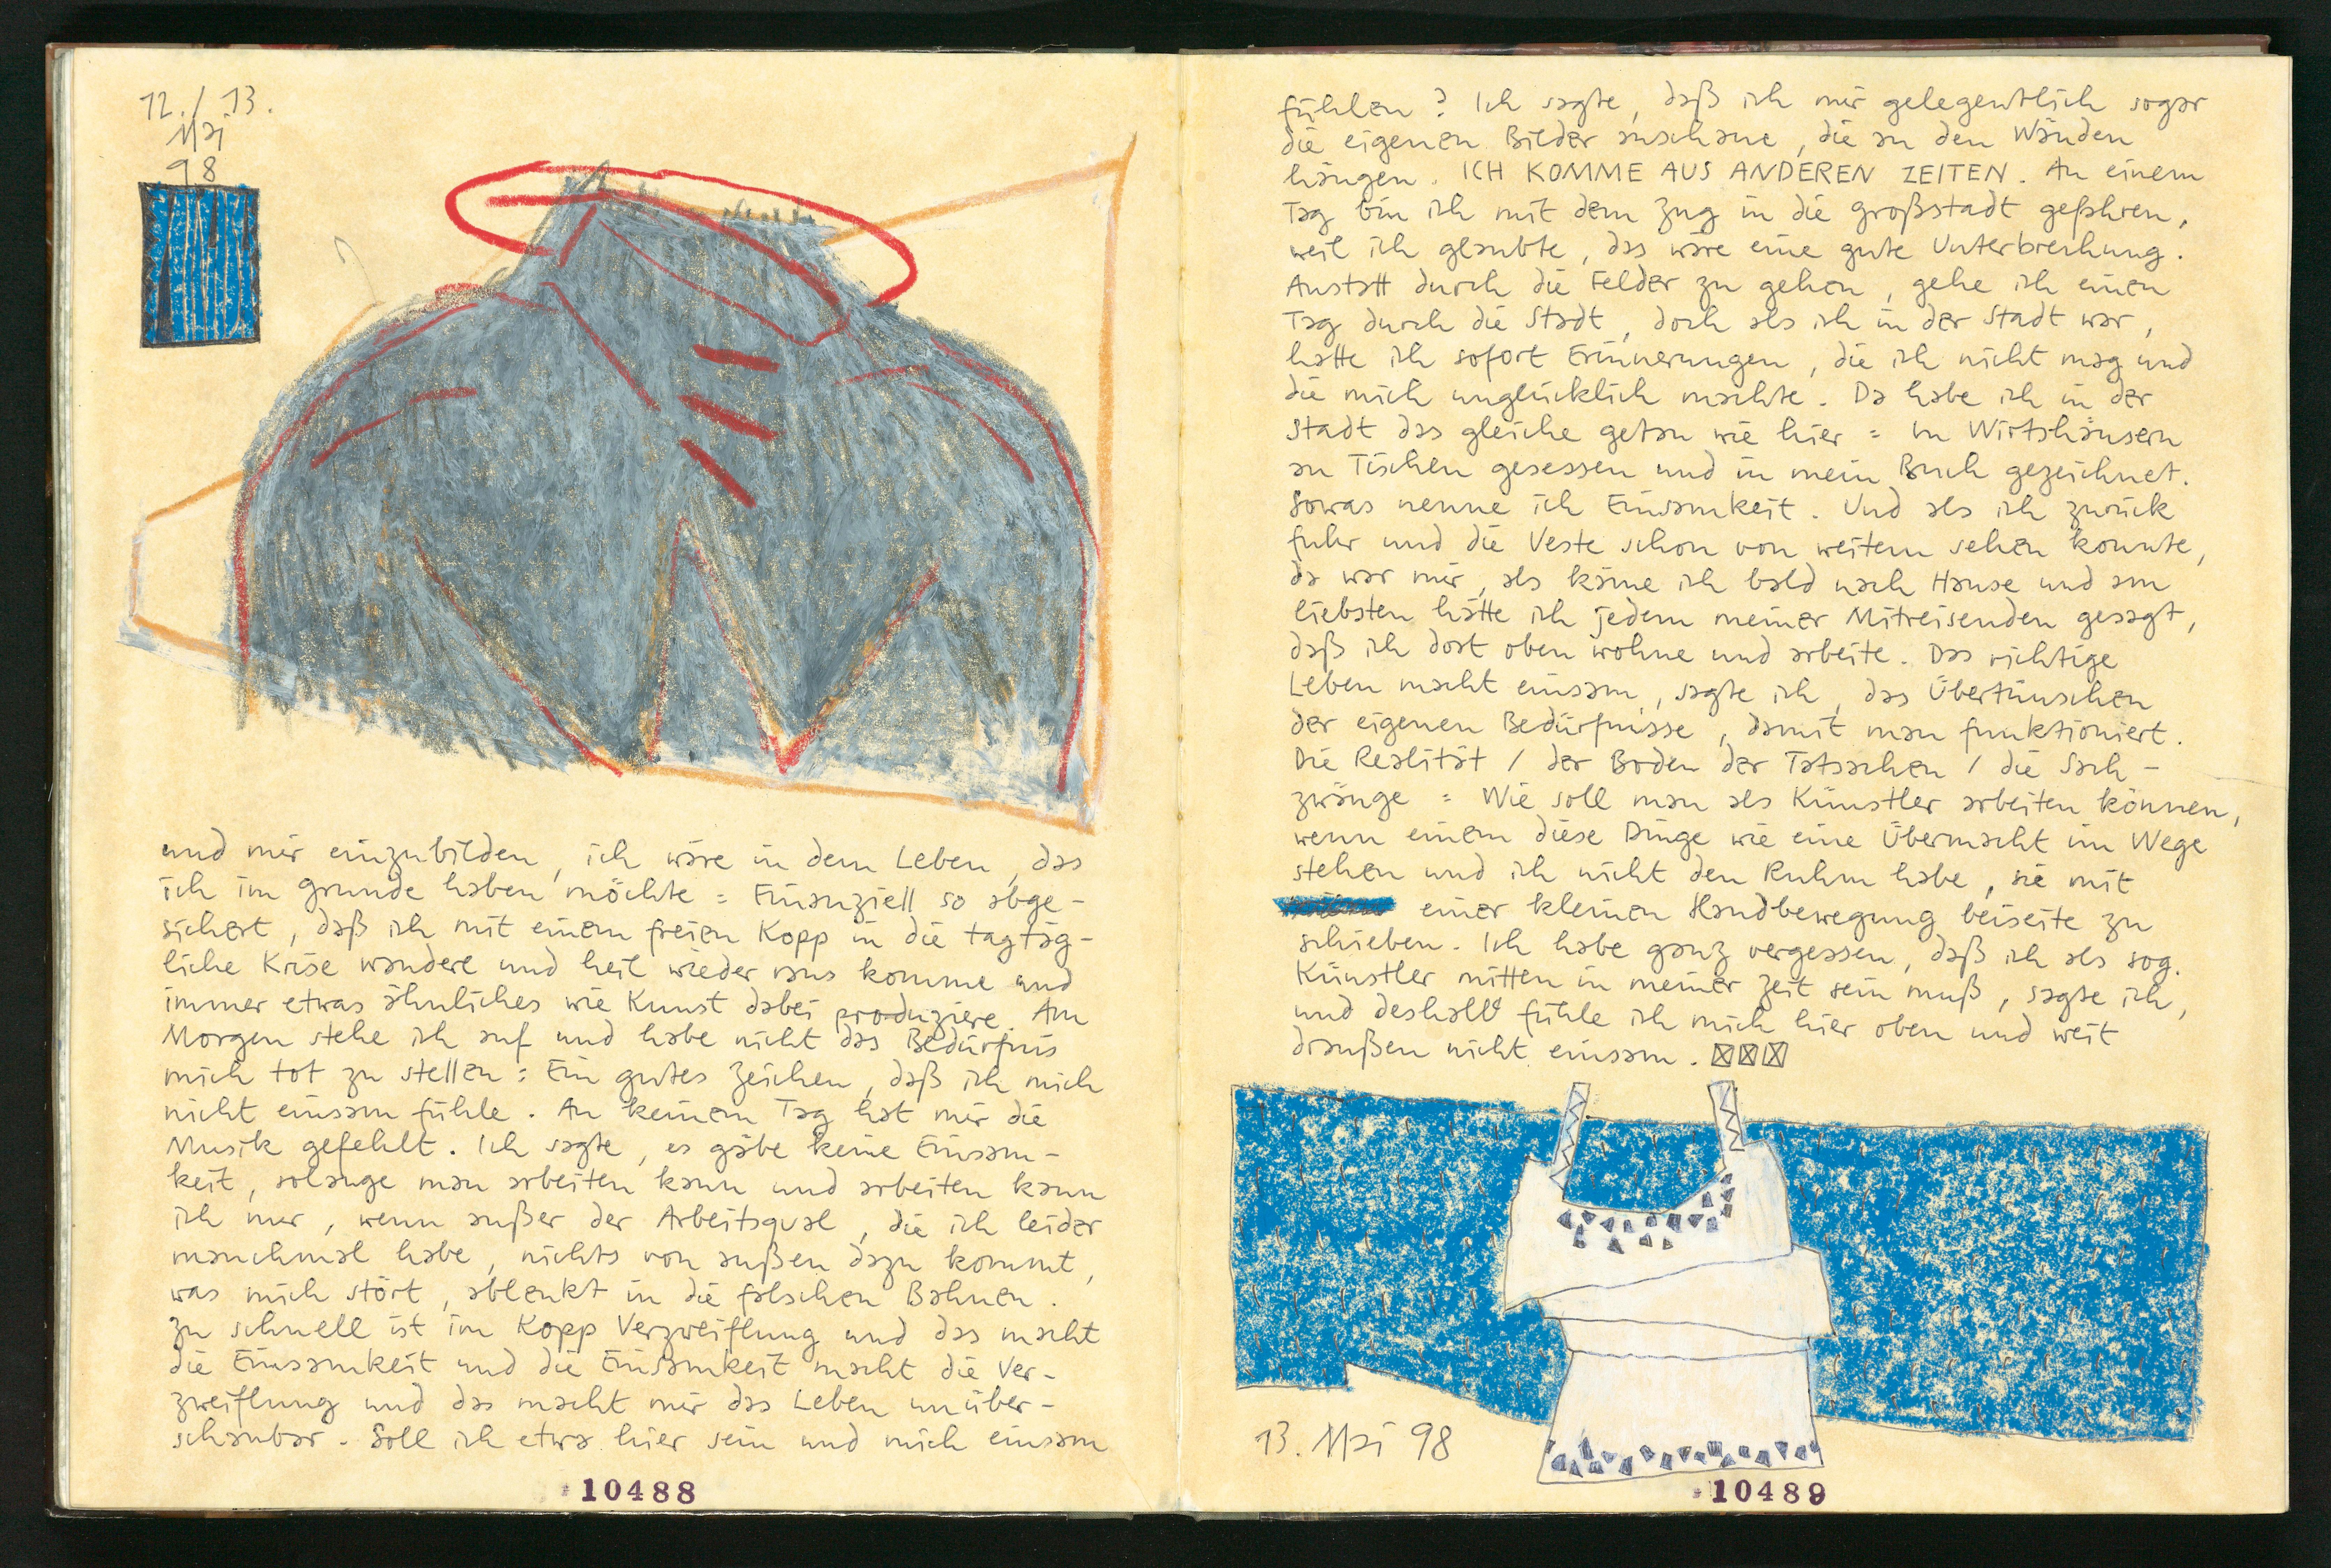 12./13.
Mai
98
und mir einzubilden, ich wäre in dem Leben, das
ich im Grunde haben möchte : Finanziell so abge-
sichert, daß ich mit einem freien Kopp in die tagtäg-
liche Krise wandere und heil wieder raus komme und
immer etwas ähnliches wie Kunst dabei produziere. Am
Morgen stehe ich auf und habe nicht das Bedürfnis
mich tot zu stellen : Ein gutes Zeichen, daß ich mich
nicht einsam fühle. An keinem Tag hat mir die
Musik gefehlt. Ich sagte, es gäbe keine Einsam-
keit, solange man arbeiten kann und arbeiten kann
ich nur, wenn außer der Arbeitsqual, die ich leider
manchmal habe, nichts von außen dazu kommt,
was mich stört, ablenkt in die falschen Bahnen.
Zu schnell ist im Kopp Verzweiflung und das macht
die Einsamkeit und die Einsamkeit macht die Ver-
zweiflung und das macht mir das Leben unüber-
schaubar. Soll ich etwa hier sein und mich einsam
10488
fühlen? Ich sagte, daß ich mir gelegentlich sogar
die eigenen Bilder anschaue, die an den Wänden
hängen. ICH KOMME AUS ANDEREN ZEITEN. An einem
Tag bin ich mit dem Zug in die Großstadt gefahren,
weil ich glaubte, das wäre eine gute Unterbrechung.
Anstatt durch die Felder zu gehen, gehe ich einen
Tag durch die Stadt, doch als ich in der Stadt war,
hatte ich sofort Erinnerungen, die ich nicht mag und
die mich unglücklich machte. Da habe ich in der
Stadt das gleiche getan wie hier : In Wirtshäusern
an Tischen gesessen und in mein Buch gezeichnet.
Sowas nenne ich Einsamkeit. Und als ich zurück
fuhr und die Veste schon von weitem sehen konnte,
da war mir, als käme ich bald nach Hause und am
liebsten hätte ich jedem meiner Mitreisenden gesagt,
daß ich dort oben wohne und arbeite. Das richtige
Leben macht einsam, sagte ich, das Übertünschen
der eigenen Bedürfnisse, damit man funktioniert.
Die Realität / der Boden der Tatsachen / die Sach-
zwänge : Wie soll man als Künstler arbeiten können,
wenn einem diese Dinge wie eine Übermacht im Wege
stehen und ich nicht den Ruhm habe, sie mit
einer kleinen Handbewegung beiseite zu
schieben. Ich habe ganz vergessen, daß ich als sog.
Künstler mitten in meiner Zeit sein muß, sagte ich,
und deshalb fühle ich mich hier oben und weit
draußen nicht einsam.
13. Mai 98
10489